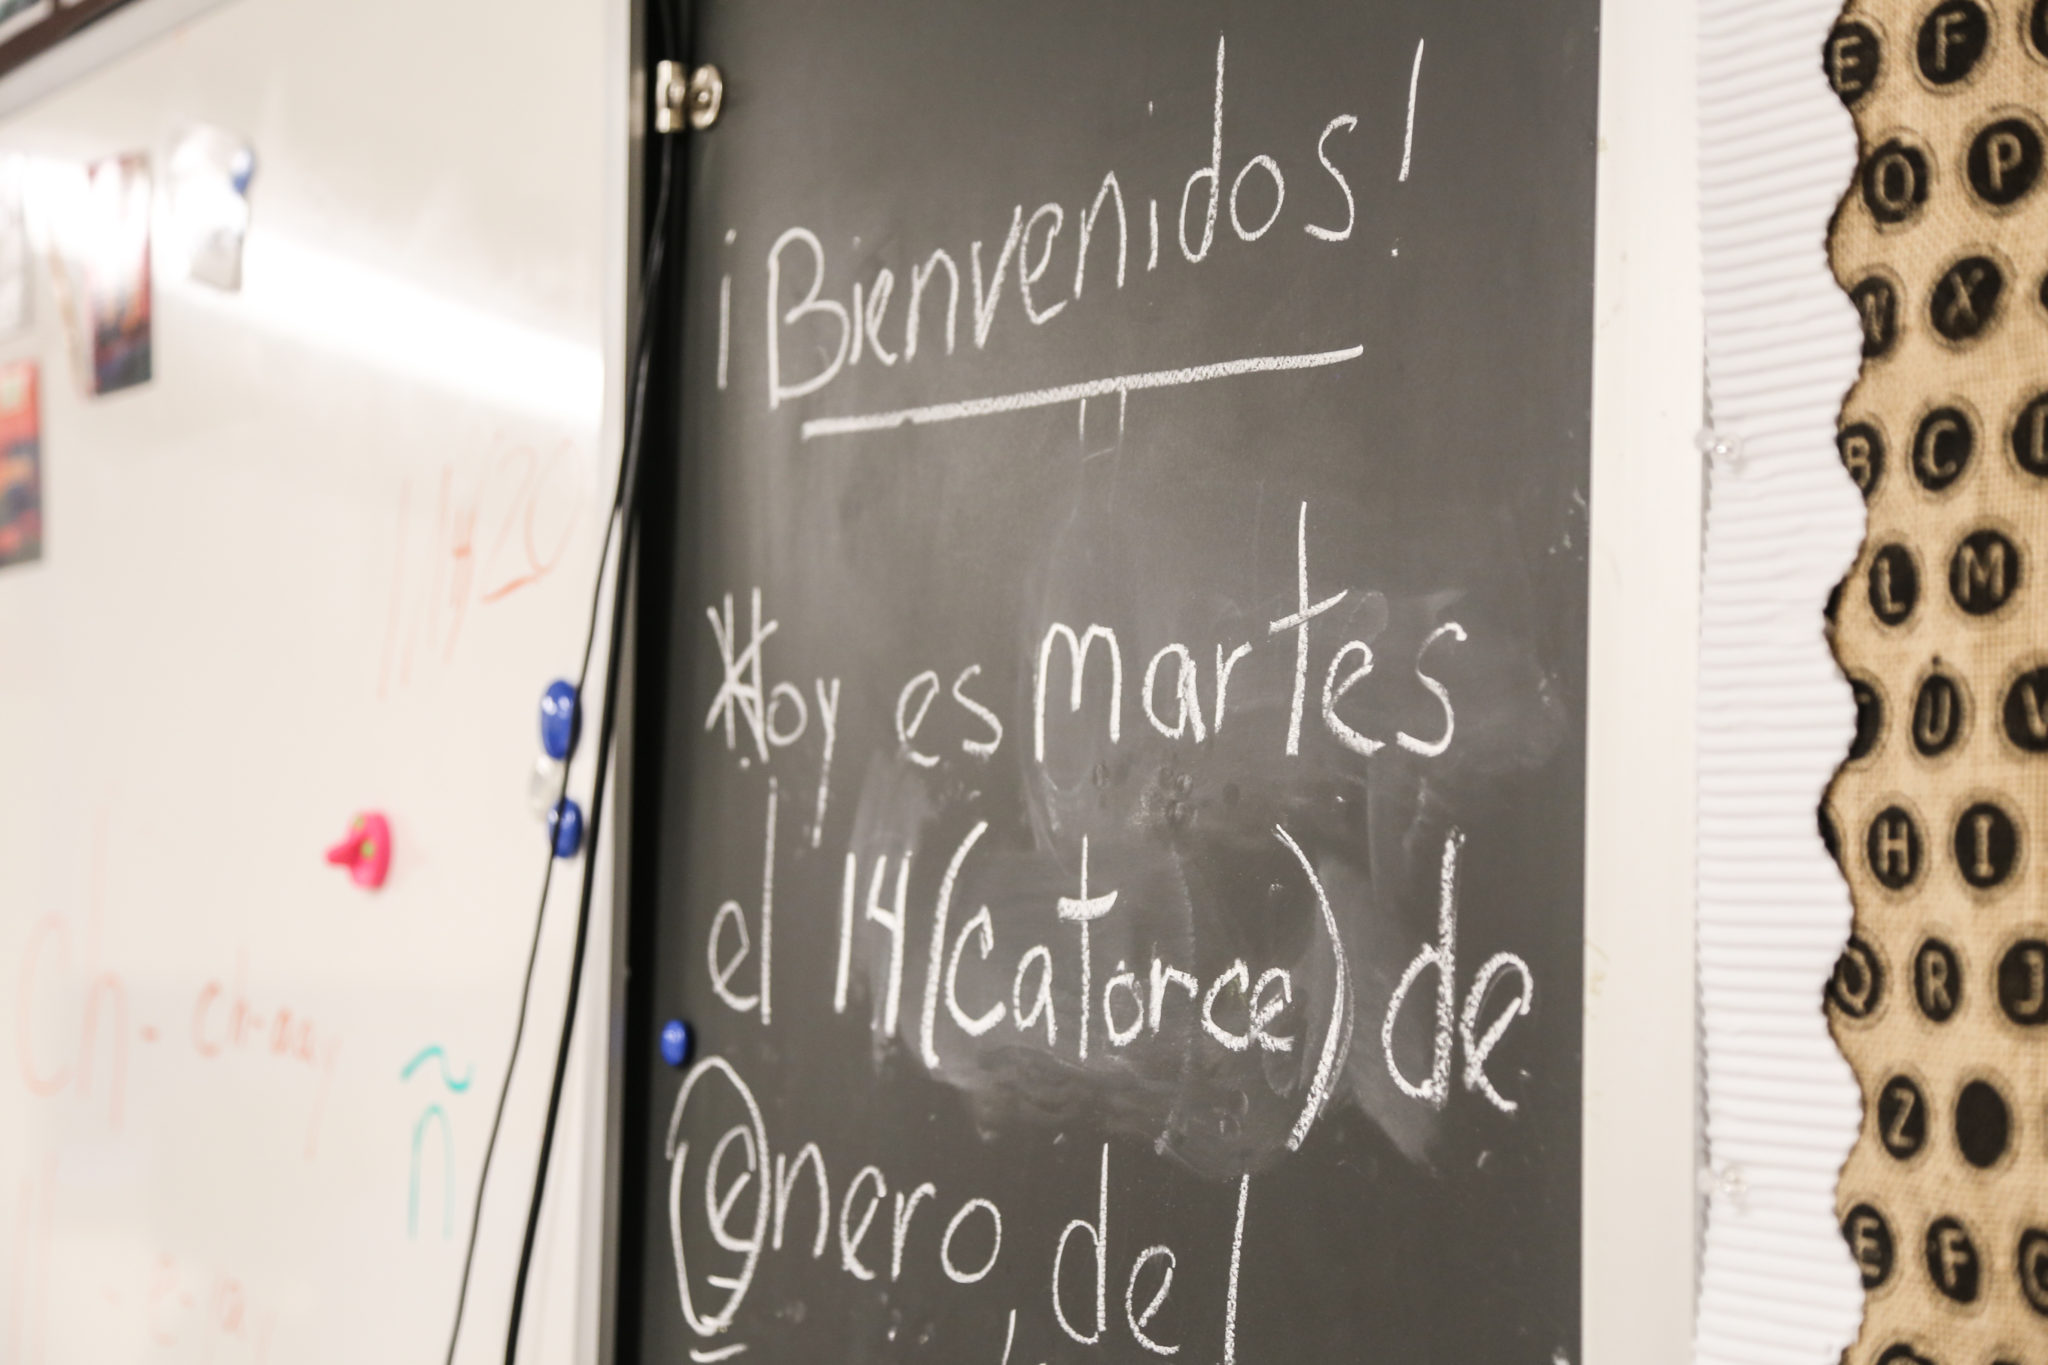 ¡Bienvenidos!
Hoy es martes
el 14 (catorce) de
enero, del
ch - ch-aay
ñ
E F
O P
N X
B C
L M
U V
H I
Q R J
Z
E F